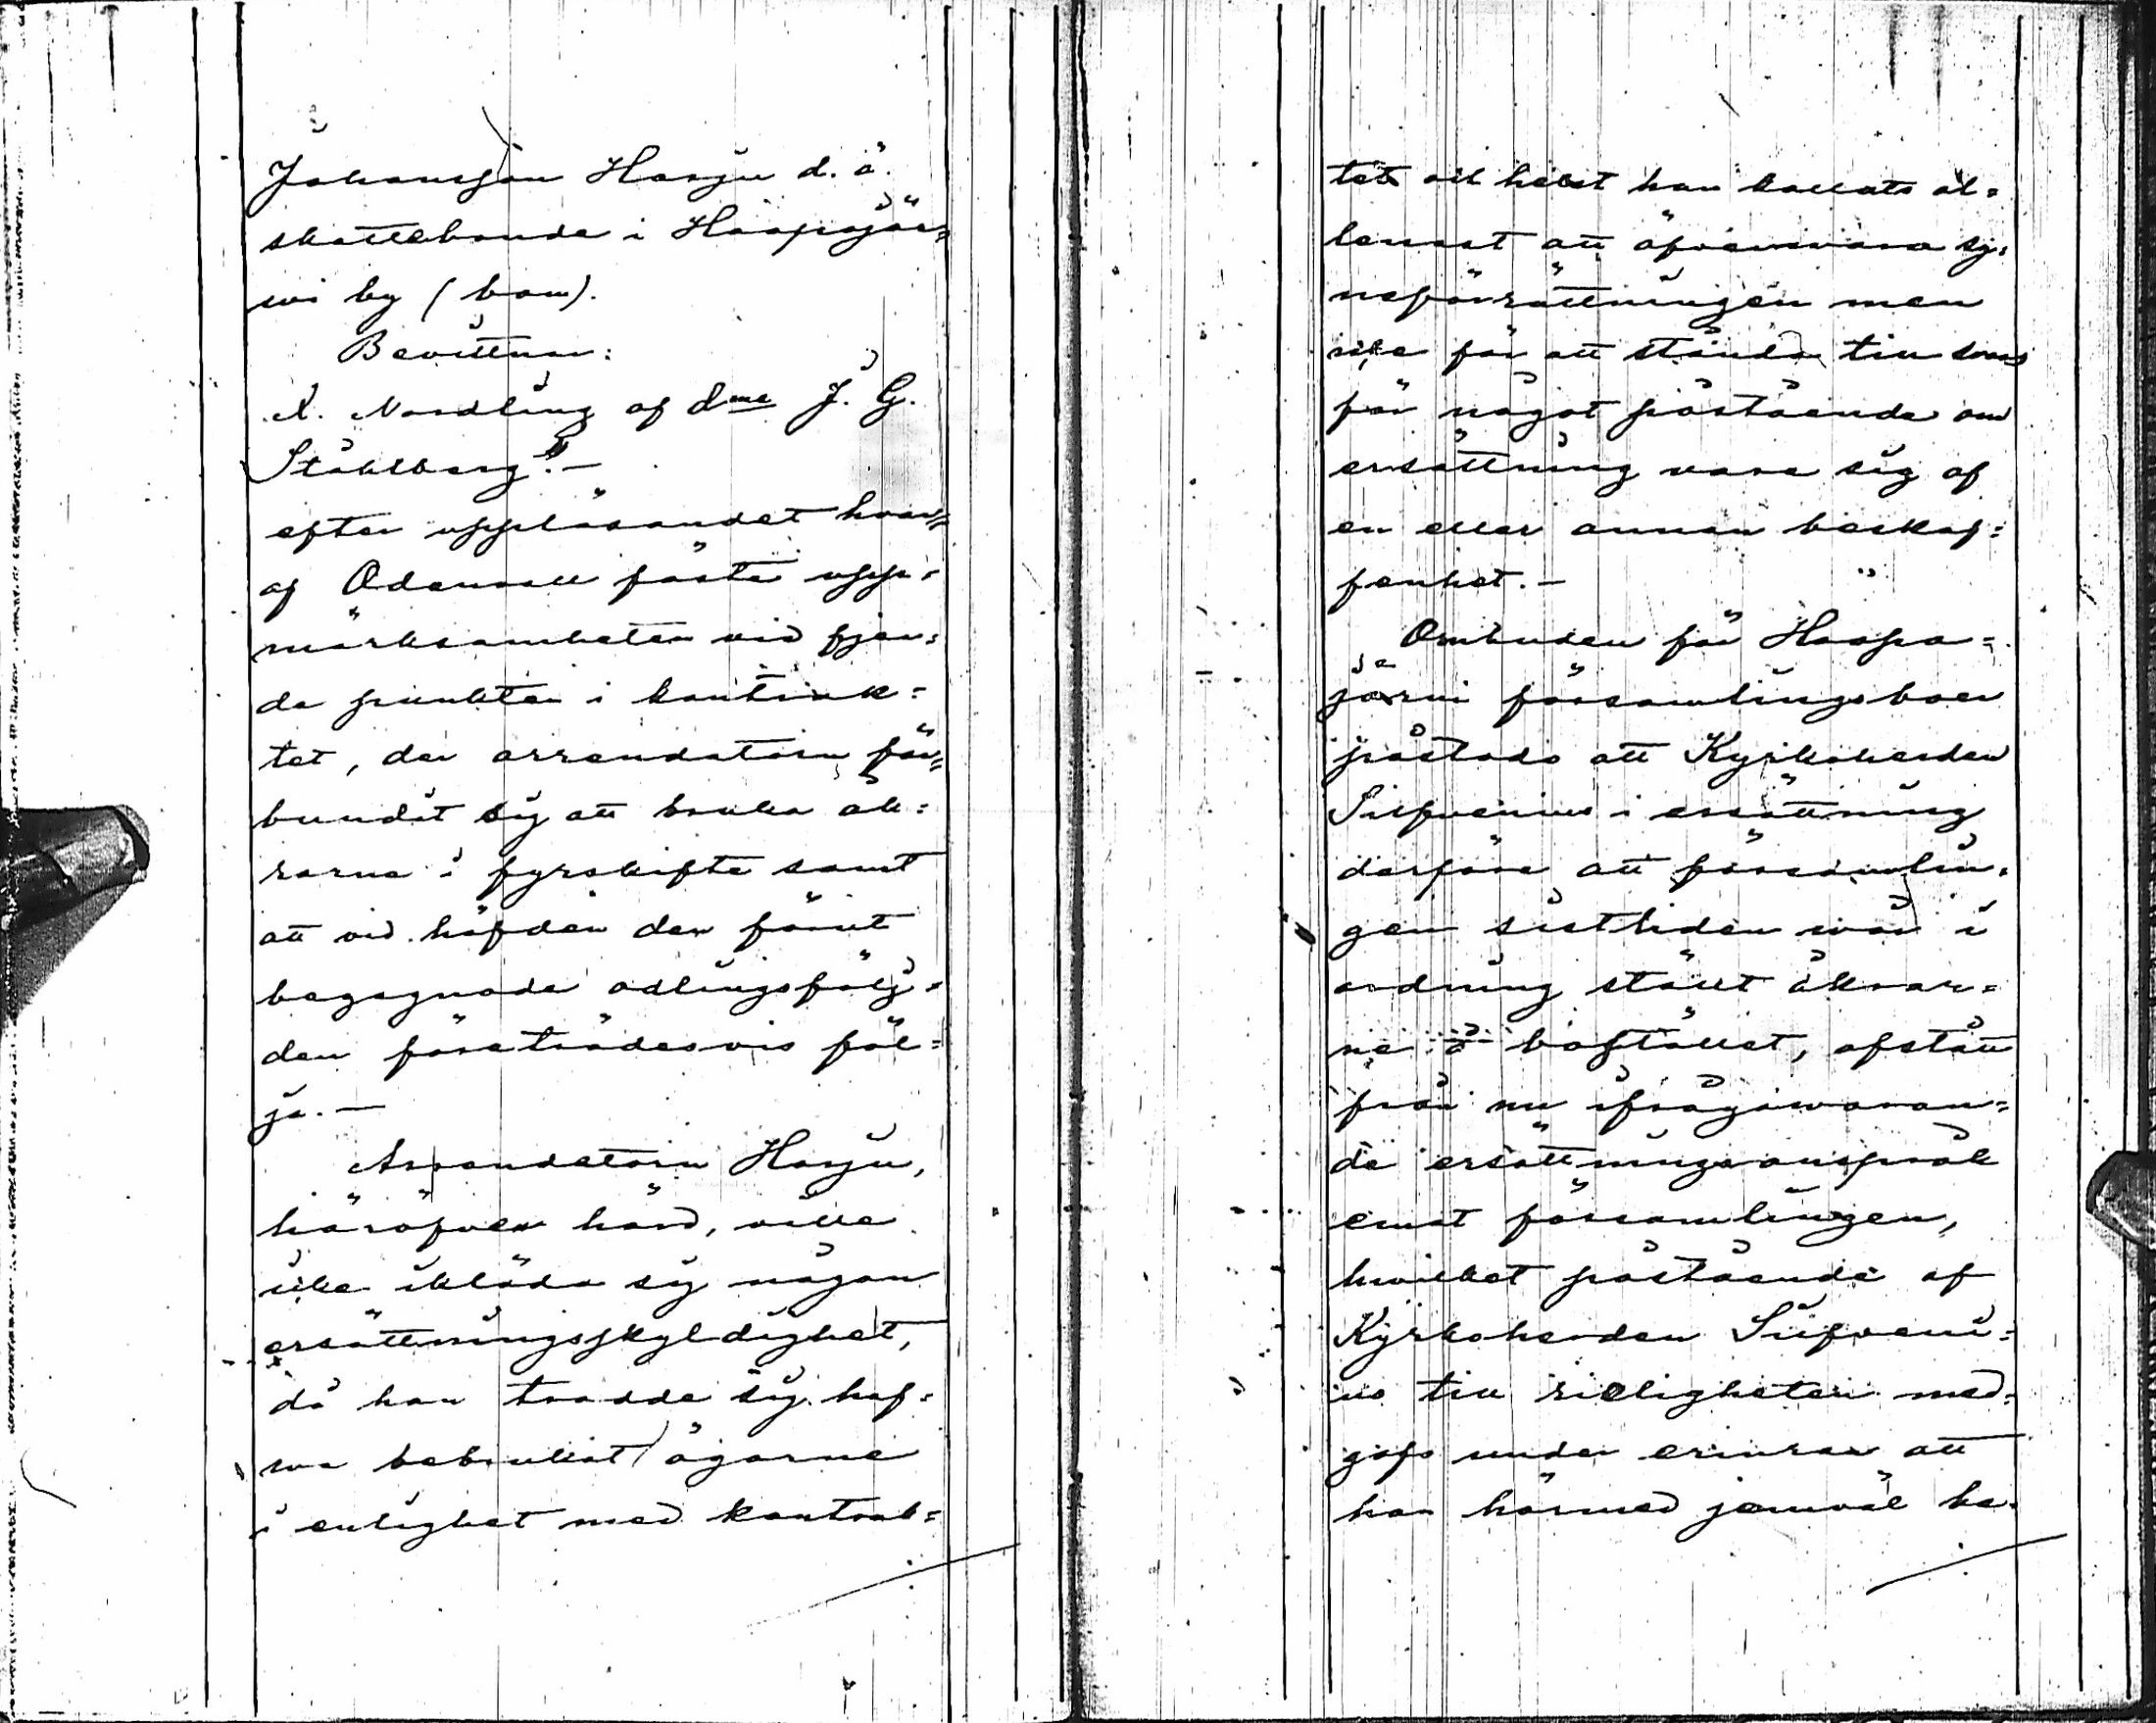 Johansson Harju d. ä.
skattebonde i Haapajär=
wi by (bom).
Bevittnar:
N. Nordling af dme J. G.
Ståhlberg".—
efter uppläsandet hvar=
af Ödenwall fäste upp=
märksamheten vid fjer=
de punkten i kontrak=
tet, der arrendatorn för=
bundit sig att bruka åk=
rarne i fyrskifte samt
att vid häfden den förut
begagnade odlingsfölj=
den företrädesvis föl=
ja.—
Arrendatorn Harju,
häröfver hörd, ville
icke ikläda sig någon
ersättningsskyldighet,
då han trodde sig haf=
wa bebrukat ägorne
i enlighet med kontrak=
tet och helst han kallats al=
lenast att öfvervara sy=
neförrättningen men
icke för att stånda till svars
för något påstående om
ersättning vare sig af
en eller annan beskaf=
fenhet.—
Ombuden för Haapa=
järvi församlingsboer
påstodo att Kyrkoherden
Silfvenius i ersättning
derföre att församlin=
gen sistliden vår i
ordning stält åkrar=
ne å bostället, afstått
från nu ifrågawaran=
de ersättningsanspråk
emot församlingen,
hwilket påstående af
Kyrkoherden Silfveni=
us till riktigheten med=
gafs under erinran att
han härmed jemväl be=